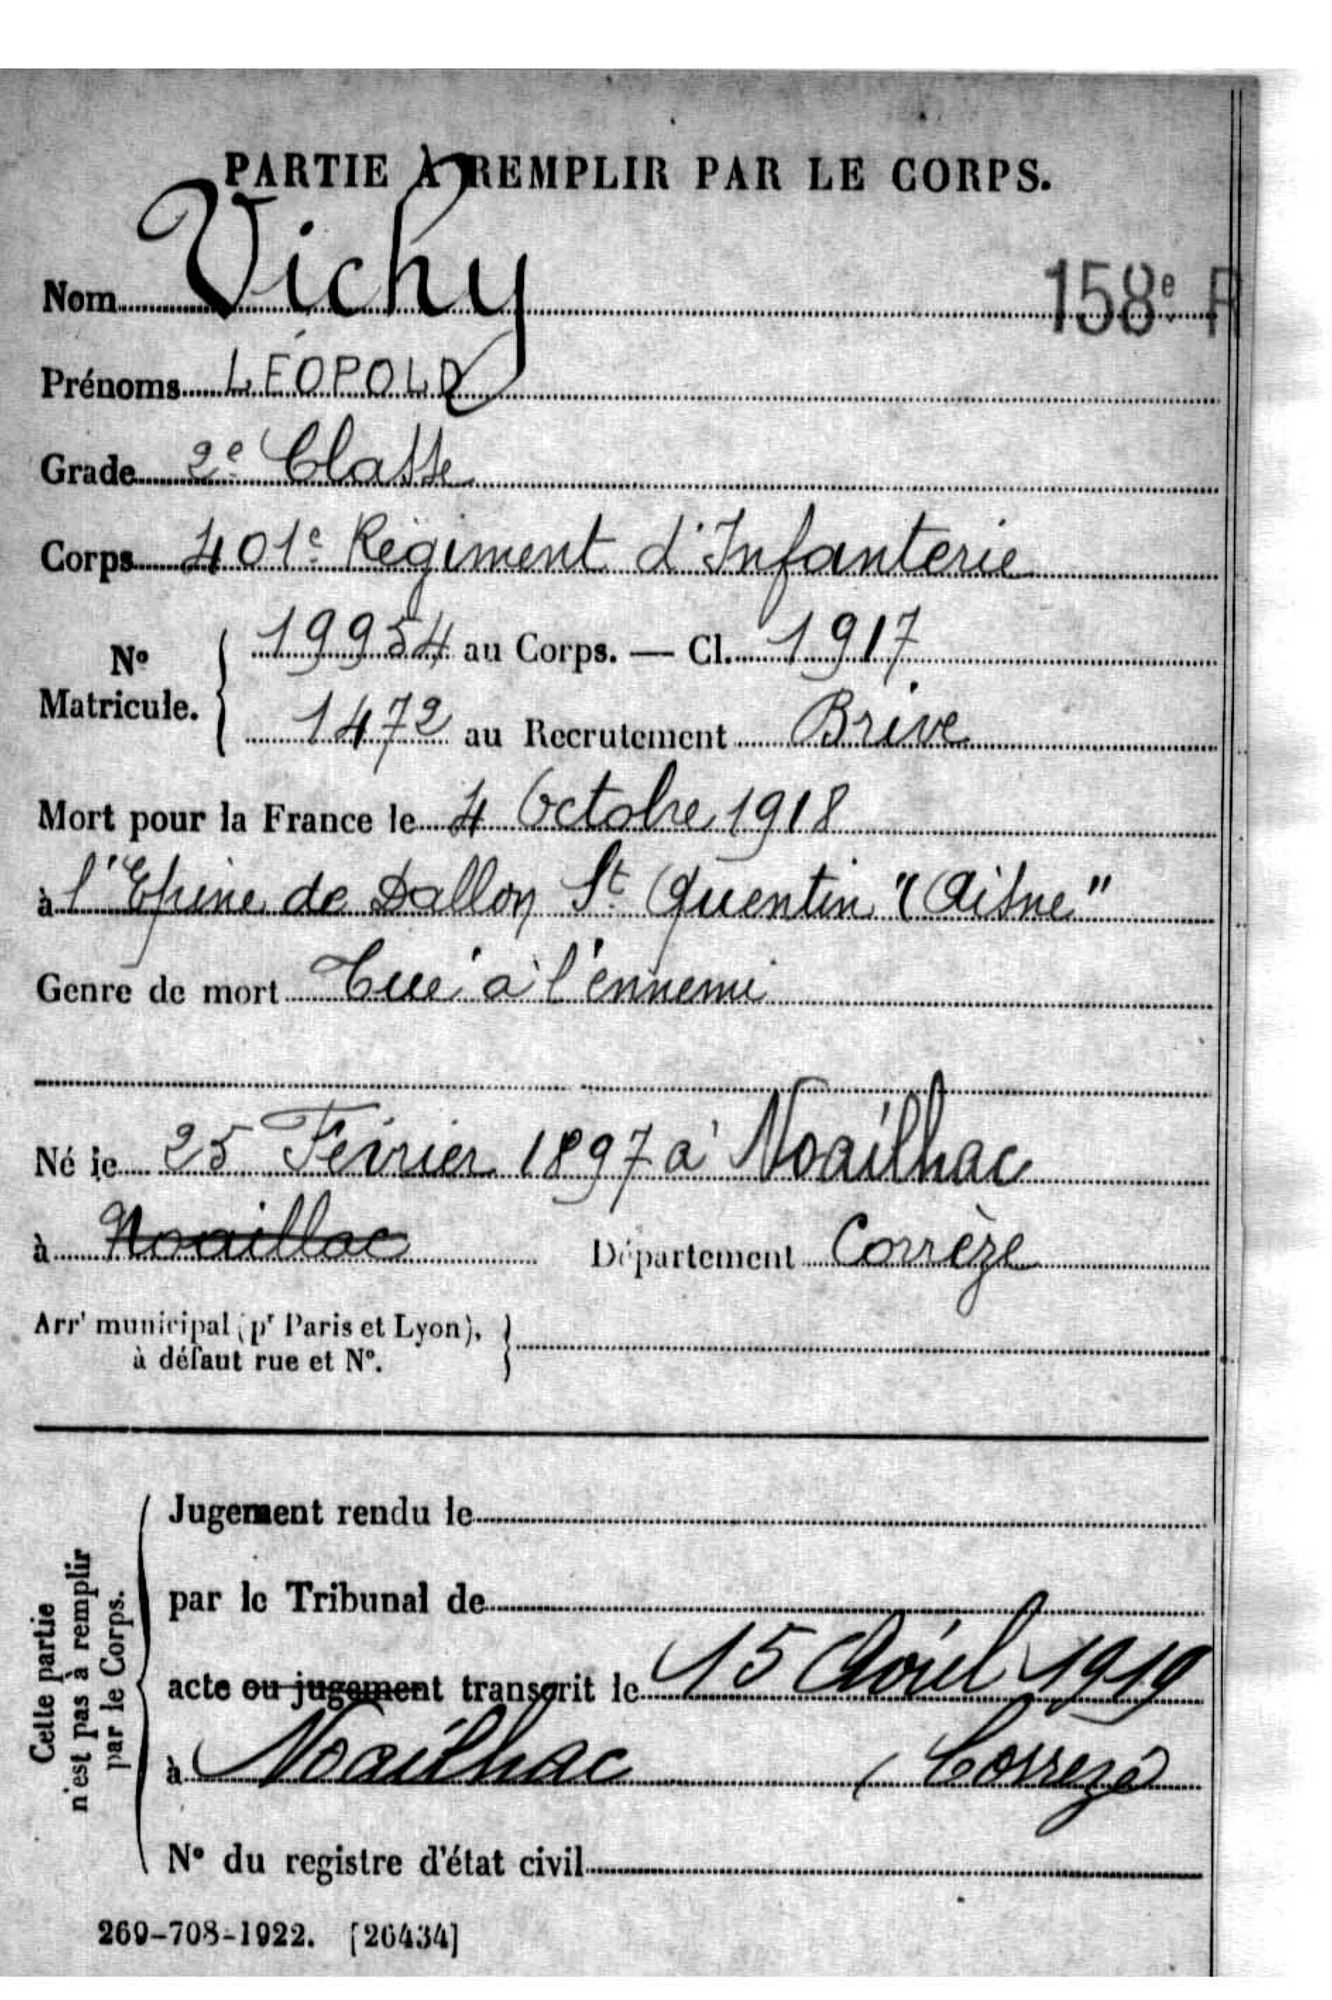 PARTIE À REMPLIR PAR LE CORPS.
Nom Vichy
158e R
Prénoms LÉOPOLD
Grade 2e Classe
Corps 401e Régiment d'Infanterie
No Matricule. { 19954 au Corps. — Cl. 1917
1472 au Recrutement Brive
Mort pour la France le 4 Octobre 1918
à l'Epine de Dallon St Quentin "(Aisne"
Genre de mort Tué à l'ennemi
Né le 25 Février 1897 à Noailhac
à Noaillac Département Corrèze
Arrt municipal (pr Paris et Lyon),
à défaut rue et No.
Cette partie
n'est pas à remplir
par le Corps.
Jugement rendu le
par le Tribunal de
acte ou jugement transcrit le 15 Avril 1919
à Noailhac (Corrèze)
No du registre d'état civil
269-708-1922. [26434]